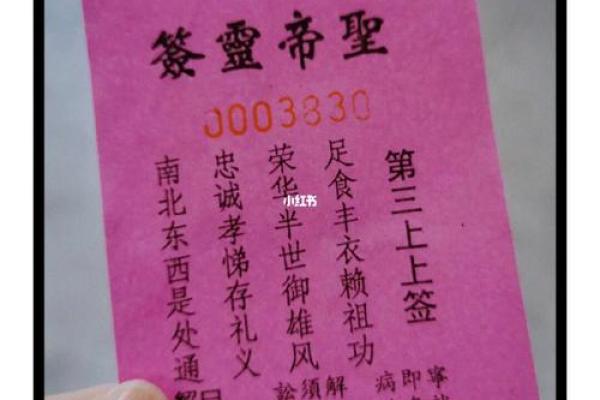 簽靈帝聖
0003830
第三上上签
足食丰衣赖祖功
荣华半世御雄风
忠诚孝悌存礼义
南北东西是处通
小红书
寧
即
病
解
須
訟